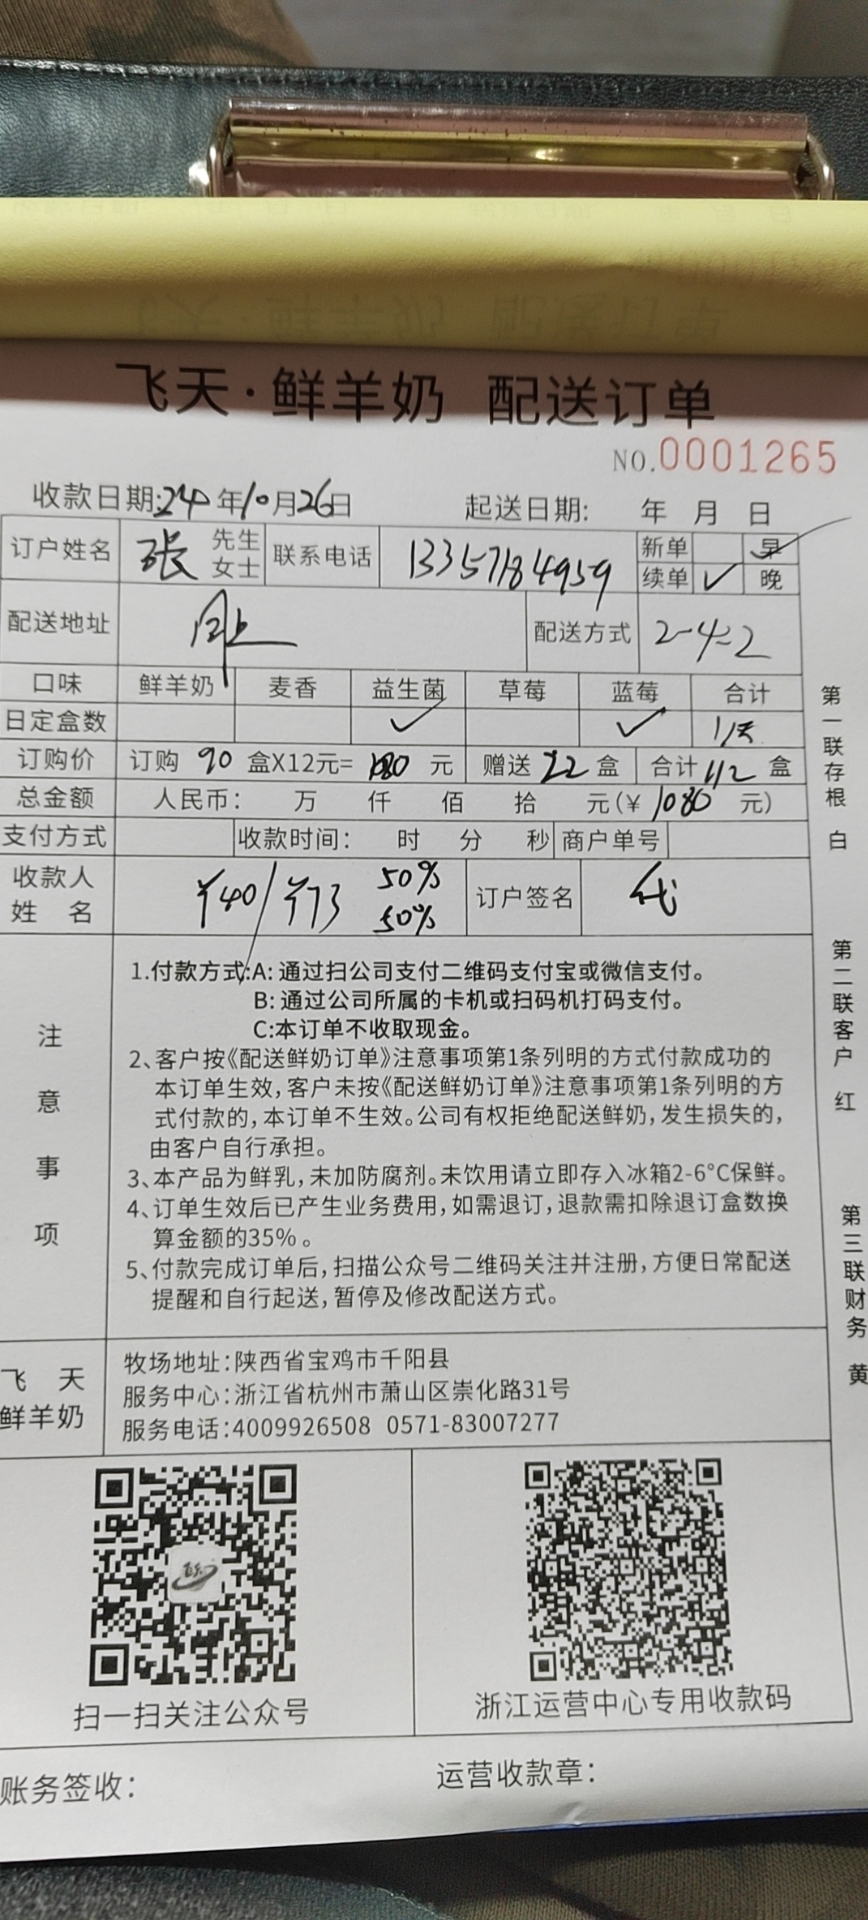 飞天·鲜羊奶 配送订单
NO.0001265
收款日期:24年10月26日 起送日期: 年 月 日
订户姓名 张 先生 女士 联系电话 13357184959 新单 早
续单 ✓ 晚
配送地址 同上 配送方式 2-4=2
口味 鲜羊奶 麦香 益生菌 草莓 蓝莓 合计
日定盒数 ✓ ✓ 1/天
订购价 订购 90 盒X12元= 1080 元 赠送 22 盒 合计 112 盒
总金额 人民币: 万 仟 佰 拾 元(¥ 1080 元)
支付方式 收款时间: 时 分 秒 商户单号
收款人 姓 名 ¥40/¥73 50% 50% 订户签名 代
注意事项
1.付款方式:A: 通过扫公司支付二维码支付宝或微信支付。
B: 通过公司所属的卡机或扫码机打码支付。
C:本订单不收取现金。
2、客户按《配送鲜奶订单》注意事项第1条列明的方式付款成功的
本订单生效,客户未按《配送鲜奶订单》注意事项第1条列明的方
式付款的,本订单不生效。公司有权拒绝配送鲜奶,发生损失的,
由客户自行承担。
3、本产品为鲜乳,未加防腐剂。未饮用请立即存入冰箱2-6°C保鲜。
4、订单生效后已产生业务费用,如需退订,退款需扣除退订盒数换
算金额的35%。
5、付款完成订单后,扫描公众号二维码关注并注册,方便日常配送
提醒和自行起送,暂停及修改配送方式。
飞天
鲜羊奶
牧场地址:陕西省宝鸡市千阳县
服务中心:浙江省杭州市萧山区崇化路31号
服务电话:4009926508 0571-83007277
扫一扫关注公众号
浙江运营中心专用收款码
账务签收:
运营收款章:
第一联存根 白
第二联客户 红
第三联财务 黄